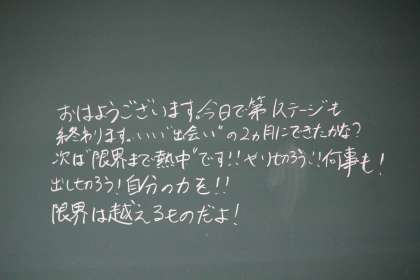 おはようございます。今日で第1ステージも
終わります。いい"出会い"の2ヵ月にできたかな?
次は"限界まで熱中"です!!やり切ろう!!何事も!
出し切ろう!自分の力を!!
限界は越えるものだよ!